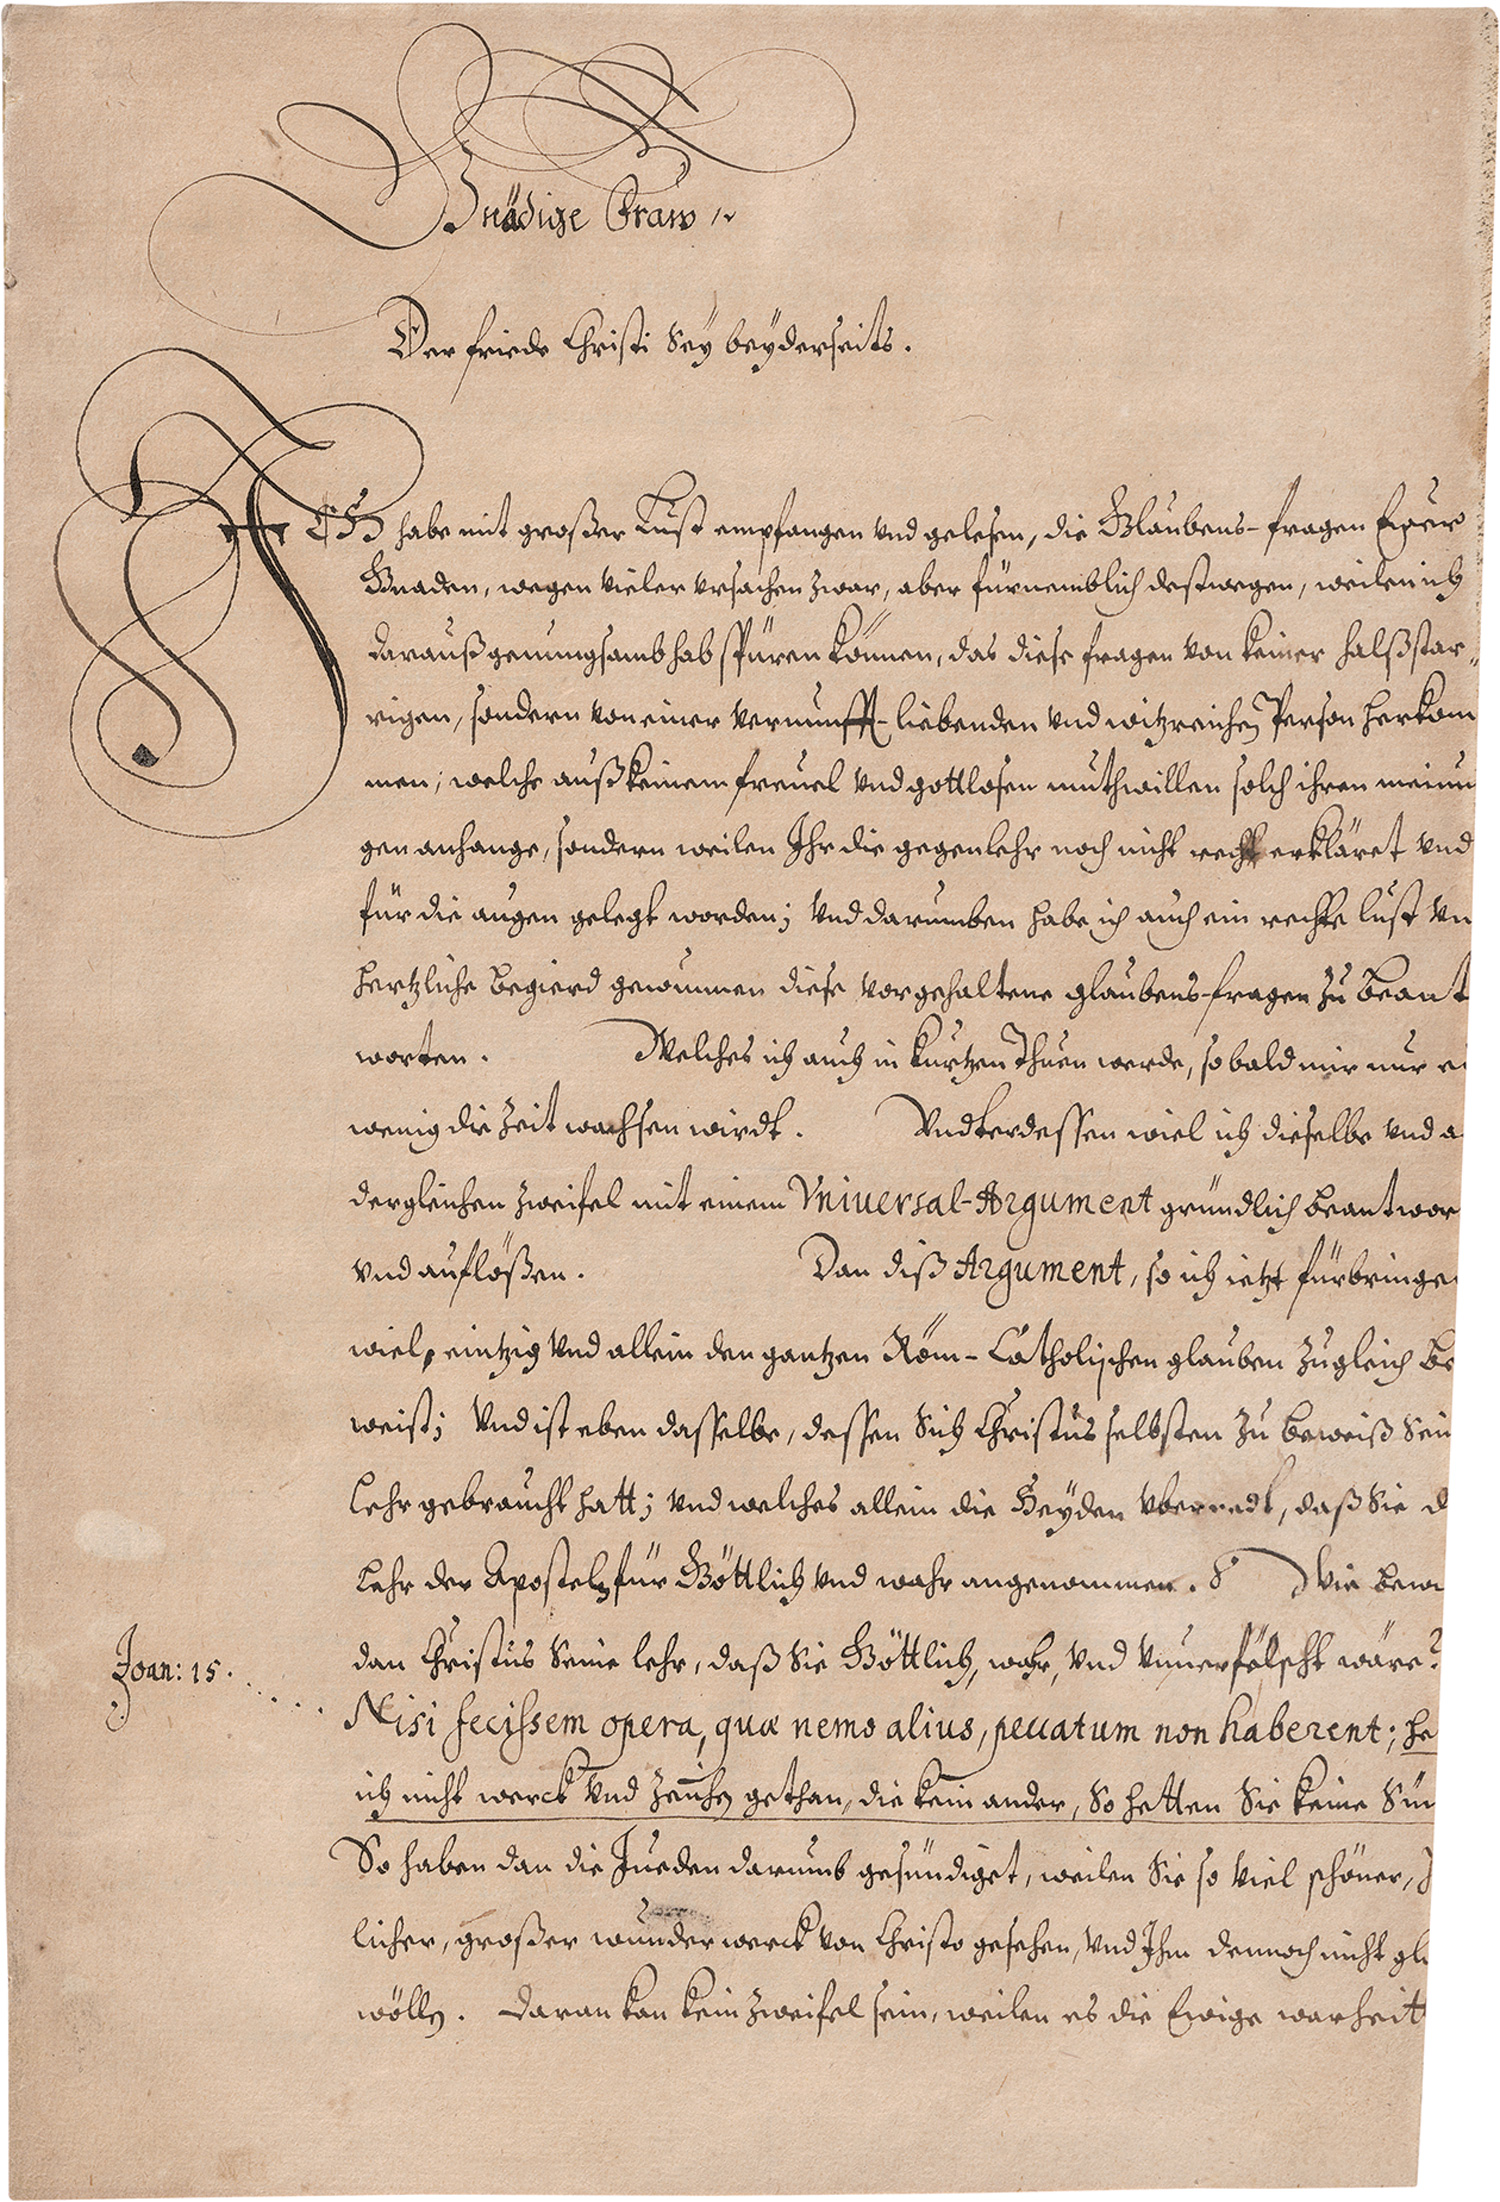 Gnädige Fraw
Der friede Christi Seÿ beÿderseits.
ICH habe mit großer Lust empfangen vnd gelesen, die Glaubens-fragen Ewer
Gnaden, wegen vieler vrsachen zwar, aber fürnemblich destwegen, weilen ich
darauß genungsamb hab spüren können, das diese fragen von keiner halßstar„
rigen, sondern von einer vernunfft-liebenden vnd witzreichen Person herkom
men; welche auß keinem freuel vnd gottlosen muthwillen solch ihren meinun
gen anhange, sondern weilen Ihr die gegenlehr noch nicht recht erkläret vnd
für die augen gelegt worden; vnd darumben habe ich auch ein rechte lust vn
hertzliche begierd gewunnen diese vorgehaltene glaubens-fragen zu beant
worten. Welches ich auch in kurtzen Thuen werde, so bald mir nur ei
wenig die Zeit wachsen wirdt. Vndterdessen wiel ich dieselbe vnd a
dergleichen zweifel mit einem Vniuersal-Argument gründlich beantwor
vnd auflößen. Dan diß Argument, so ich ietzt fürbringe
wiel, eintzig vnd allein den gantzen Röm-Catholischen glauben zugleich be
weist; vnd ist eben dasselbe, dessen Sich Christus selbsten zu beweiß Sein
Lehr gebraucht hatt; vnd welches allein die Heÿden vberredt, daß Sie d
Lehr der Apostelen für Göttlich vnd wahr angenommen. Wie bewi
dan Christus Seine lehr, daß Sie Göttlich, wahr, vnd vnuerfälscht wäre?
Joan: 15.
Nisi fecissem opera, quæ nemo alius, peccatum non haberent; he
ich nicht werck vnd Zeichen gethan, die kein ander, So hetten Sie keine Sün
So haben dan die Jueden darumb gesündiget, weilen Sie so viel schöner,
licher, großer wunderwerck von Christo gesehen, vnd Ihm dennoch nicht gl
wöllen. Daran kan kein zweifel sein, weilen es die Ewige warheit